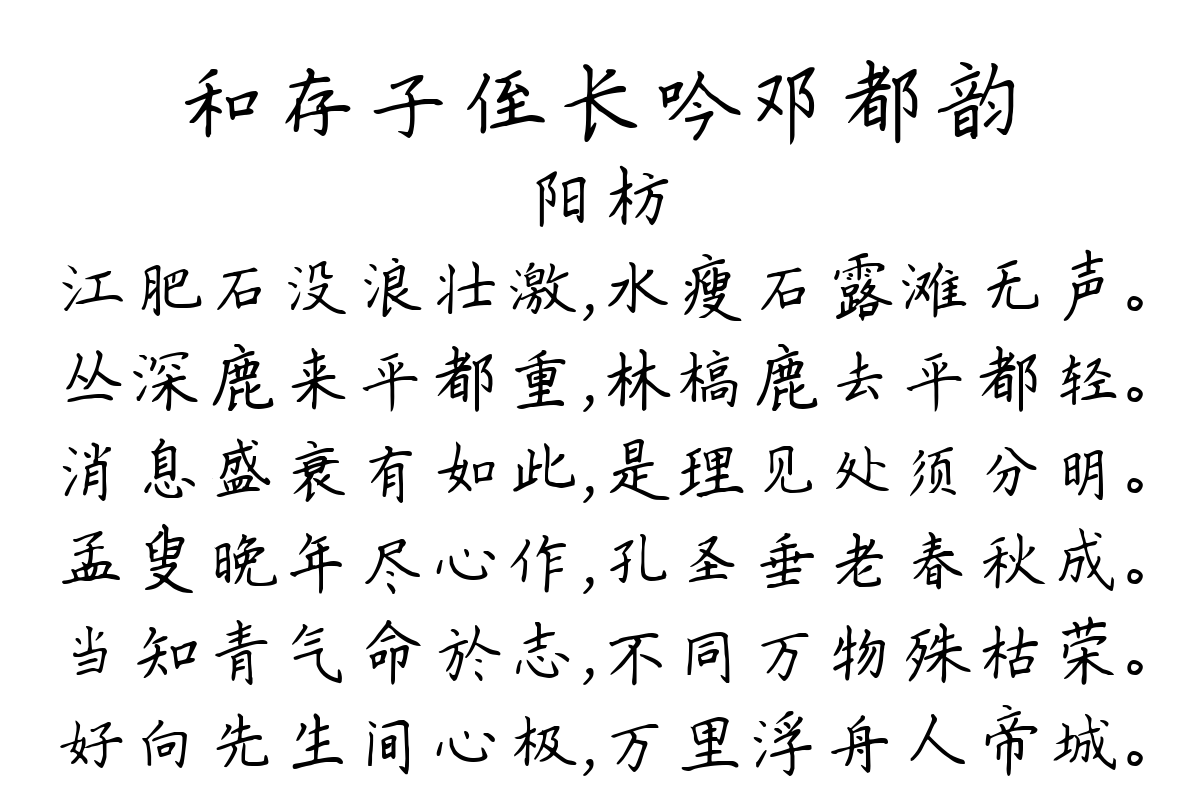 和存子侄长吟邓都韵
阳枋
江肥石没浪壮激,水瘦石露滩无声。
丛深鹿来平都重,林槁鹿去平都轻。
消息盛衰有如此,是理见处须分明。
孟叟晚年尽心作,孔圣垂老春秋成。
当知青气命於志,不同万物殊枯荣。
好向先生间心极,万里浮舟人帝城。